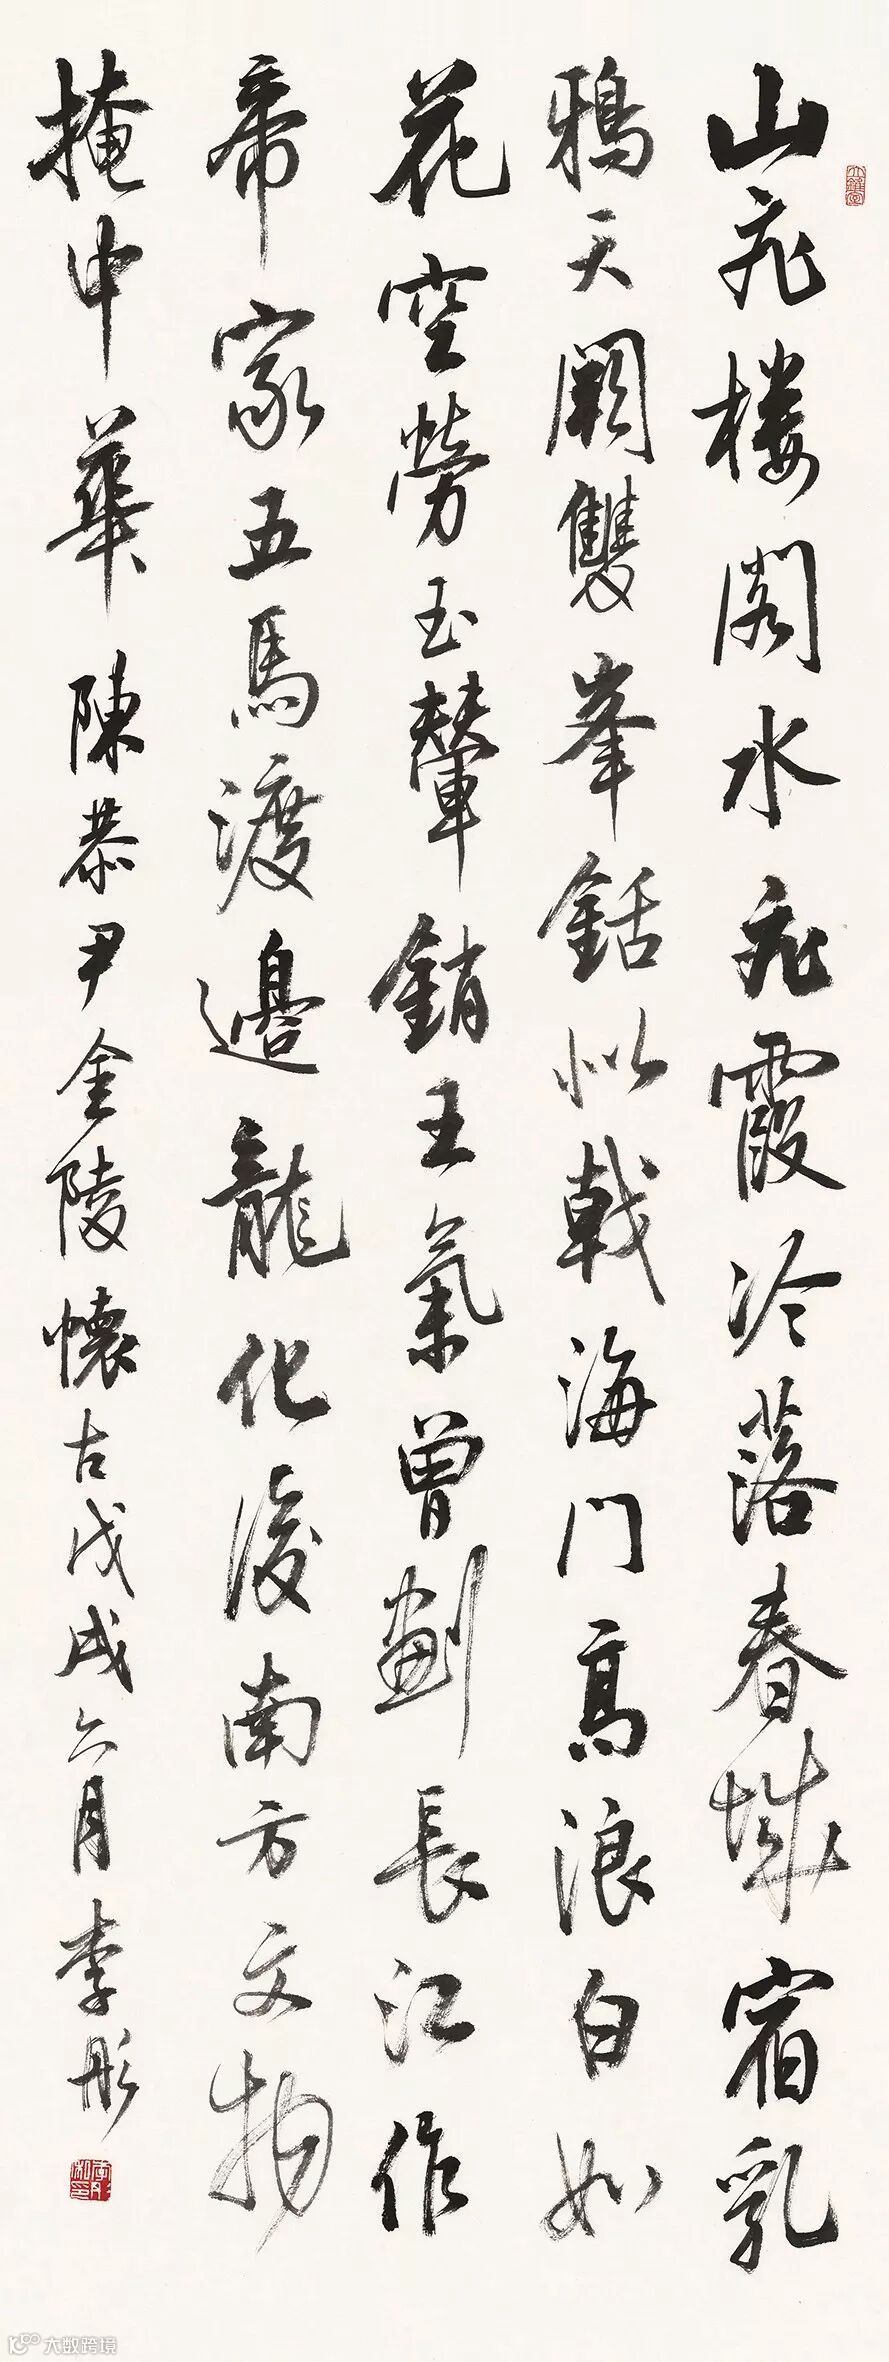 山楼閣水霞冷落春城宿乳
鴉天闕雙峯銛似戟海門高浪白如
花空勞玉輦銷王氣曾劃長江作
帝家五馬渡邊龍化後南方文物
掩中華 陳恭尹金陵懷古戊戌六月李彤
李彤私印
大数跨境